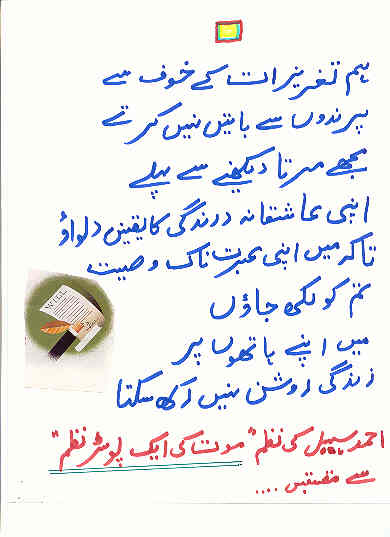 ہم تعزیرات کے خوف سے
پرندوں سے باتیں نہیں کرتے
مجھے مرتا دیکھنے سے پہلے
اپنی عاشقانہ درندگی کا یقین دلواؤ
تاکہ میں اپنی عبرت ناک وصیت
تم کو لکھی جاؤں
میں اپنے ہاتھوں پر
زندگی روشن نہیں رکھ سکتا
WILL
احمد سہیل کی نظم "موت کی ایک پوسٹر نظم"
سے مقتبس ....